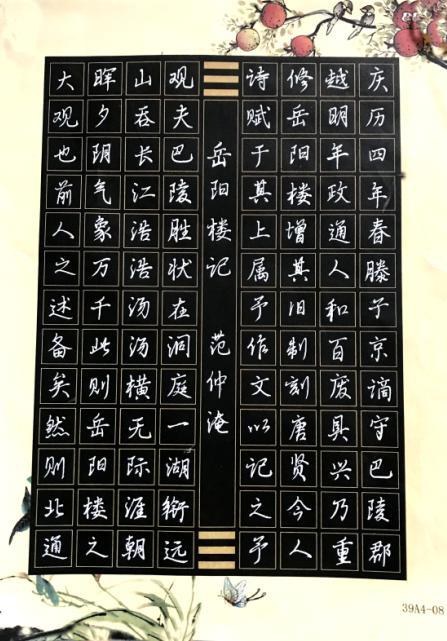 庆历四年春滕子京谪守巴陵郡
越明年政通人和百废具兴乃重
修岳阳楼增其旧制刻唐贤今人
诗赋于其上属予作文以记之予
岳阳楼记 范仲淹
观夫巴陵胜状在洞庭一湖衔远
山吞长江浩浩汤汤横无际涯朝
晖夕阴气象万千此则岳阳楼之
大观也前人之述备矣然则北通
39A4-08